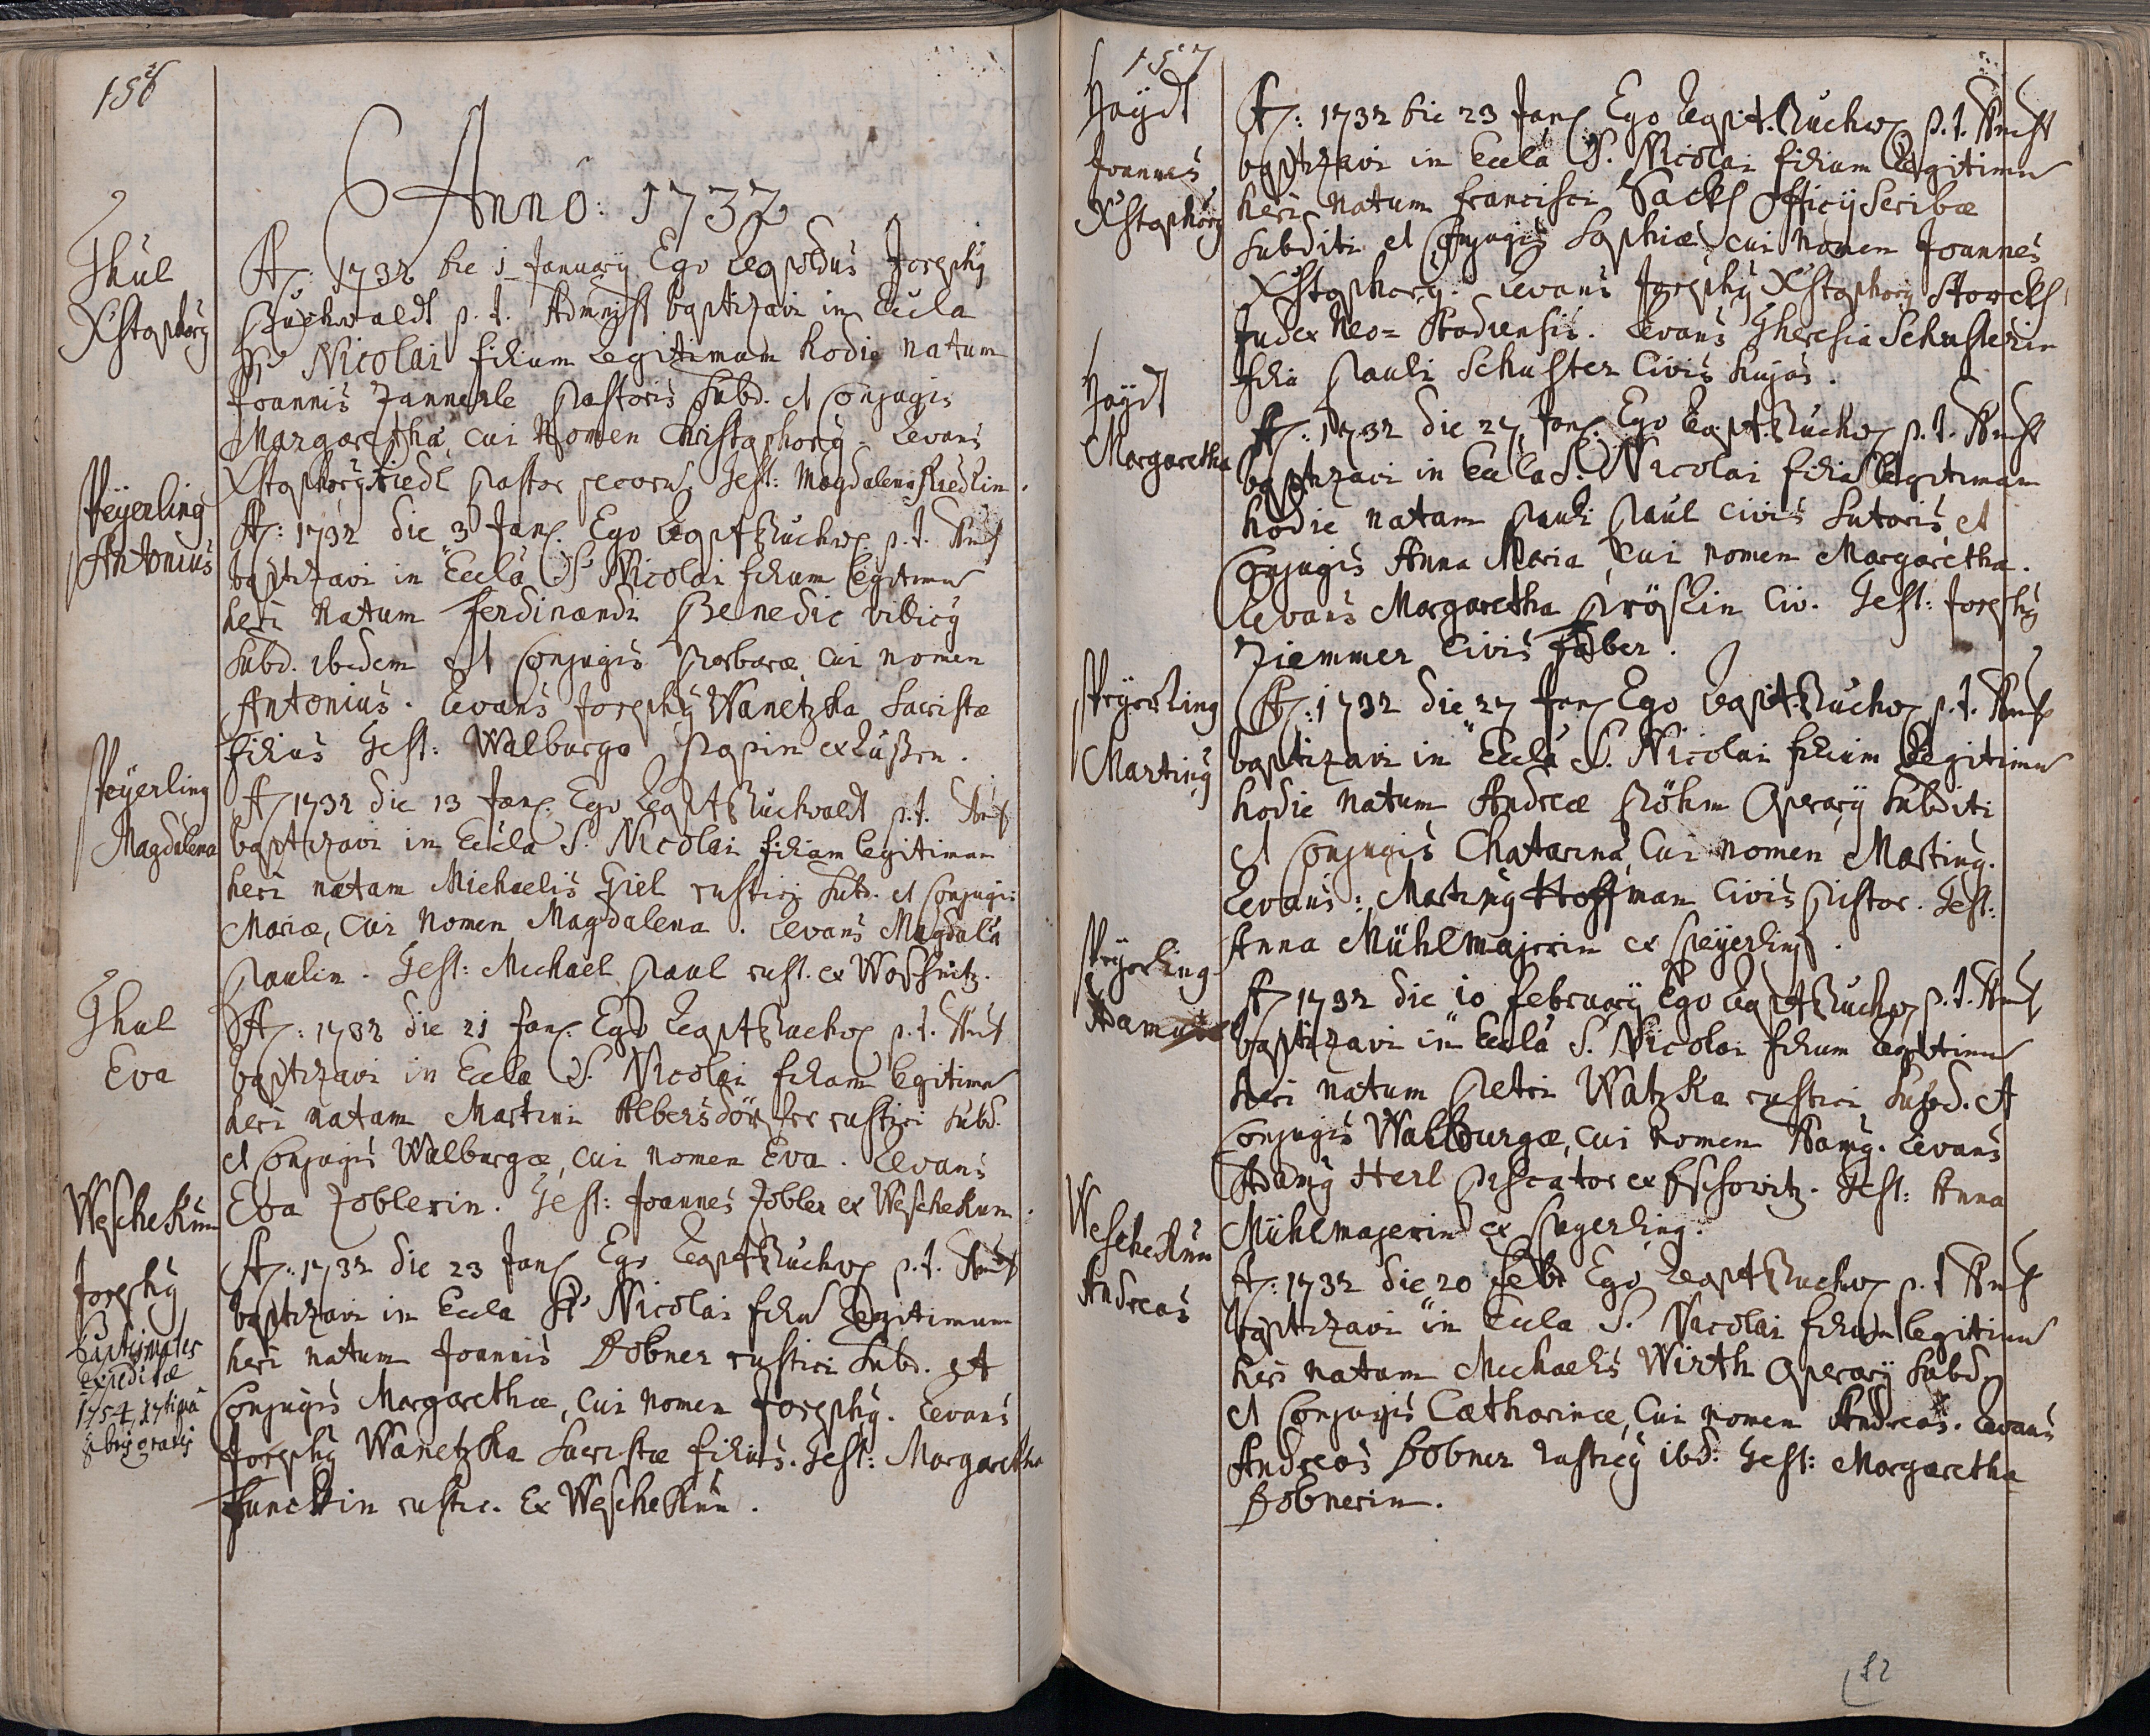 156
Anno: 1732
Thul
Xstophorg
A: 1732 die 1 January Ego Leopoldus Josephg
Buchwaldt p. t. Admnst baptizavi in Eccla
St. Nicolai filium legitimum hodie natum
Joannis Jannerle Pastoris Subd. et Conjugis
Margaretha, cui Nomen Christophorg. Levans
Xstophorg Riedl Pastor Test: Magdalena Riedlin.
Peyerling
Antonius
A: 1732 die 3 Jan. Ego Leop. Buchw p. t.
baptizavi in Eccla S. Nicolai filium legitimu
heri natum Ferdinandi Benedic villicg
Subd. ibidem et Conjugis Barbaræ cui nomen
Antonius. Levans Josephg Wanetzka Sacristæ
filius Test: Walburga Papin ex
Peyerling
Magdalena
A 1732 die 13 Jan. Ego Leop. Buchwaldt p. t.
baptizavi in Eccla S. Nicolai filiam legitimam
heri natam Michaelis Giel rustici Subd. et Conjugis
Mariæ, Cui Nomen Magdalena. Levans Magdala
Paulin. Test: Michael Paul rust. ex Woschnitz.
Thul
Eva
A: 1732 die 21 Jan. Ego Leop. Buchw p. t.
baptizavi in Eccla S. Nicolai filiam legitima
heri natam Martini Albersdörfer rustici Subd.
et Conjugis Walburgæ, cui nomen Eva. Levans
Eva Zoblerin. Test: Joannes Zobler ex Weschekun.
Weschekun
Josephg
baptismales
expeditæ
1754
A: 1732 die 23 Jan Ego Leop. Buchw p. t.
baptizavi in Eccla St. Nicolai filiu legitimum
heri natum Joannis Dobner rustici Subd. et
Conjugis Margarethæ, Cui nomen Josephg. Levans
Josephg Wanetzka Sacristæ filius. Test: Margaretha
Funckin rustic. Ex Weschekun.
157
Haydt
Joannes
Xstophorg
A: 1732 die 23 Jan Ego Leop. Buchw p. t.
baptizavi in Eccla S. Nicolai filium legitimu
heri natum Francisci Sack Officij Scribæ
Subditi et Conjugis Sophiæ, cui Nomen Joannes
Xstophorg. Levans Josephg Xstophorg Storck
Judex Neo=Stadiensis. Levans Theresia Schusterin
filia Pauli Schuster Civis hujas.
Haydt
Margaretha
A: 1732 die 27 Jan. Ego Leop. Buchw p. t.
baptizavi in Eccla S. Nicolai filia legitimam
hodie natam Pauli Paul civis Sutoris et
Conjugis Anna Maria, cui nomen Margaretha.
Levans Margaretha Civ. Test: Josephg
Ziemmer Civis Faber.
Peyerling
Marting
A: 1732 die 27 Jan Ego Leop. Buchw p. t.
baptizavi in Eccla S. Nicolai filium legitimu
hodie natum Andreæ Böhm Operarij Subditi
et Conjugis Chatarina, Cui nomen Marting.
Levans: Marting Hoffman Civis Pistor. Test:
Anna Mühlmajerin ex Peyerling.
Peyerling
A 1732 die 10 February Ego Leop. Buchw p. t.
baptizavi in Eccla S. Nicolai filium legitimu
heri natum Petri Watzka rustici Subd. et
Conjugis Walburgæ, cui nomen Adamg. Levans
Adamg Herl Piscator ex Test: Anna
Mühlmajerin ex Peyerling.
Weschekun
Andreas
A: 1732 die 20 Feb Ego Leop. Buchw p. t
baptizavi in Eccla S. Nicolai filium legitimu
heri natum Michaelis Wirth Operarij Subd.
et Conjugis Catharinæ, Cui nomen Andreas. Levans
Andreas Dobner rusticg ibd: Test: Margaretha
Dobnerin.
82